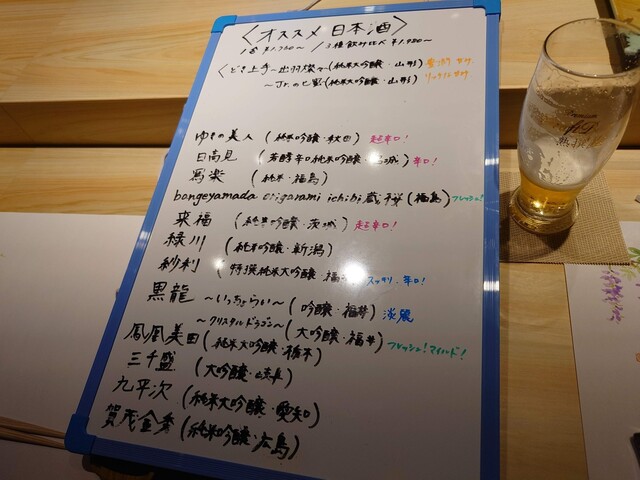 〈オススメ 日本酒〉
1合 ¥1,250〜 / 3種飲み比べ ¥1,980〜
くどき上手〜出羽燦々〜(純米大吟醸・山形)
〜Jr.の七星〜(純米大吟醸・山形)
ゆきの美人 (純米吟醸・秋田) 超辛口!
日高見 (芳醇辛口純米吟醸・宮城) 辛口!
寫楽 (純米・福島)
bangeyamada origarami ichibi 蔵 (福島) フレッシュ!
来福 (純米吟醸・茨城) 超辛口!
緑川 (純米吟醸・新潟)
紗利 (特撰純米大吟醸・福 スッキリ、辛口!
黒龍 〜いっちょらい〜 (吟醸・福井) 淡麗
〜クリスタルドラゴン〜 (大吟醸・福井)
鳳凰美田 (純米大吟醸・栃木) フレッシュ!マイルド!
三千盛 (大吟醸・岐阜)
九平次 (純米大吟醸・愛知)
賀茂金秀 (純米吟醸・広島)